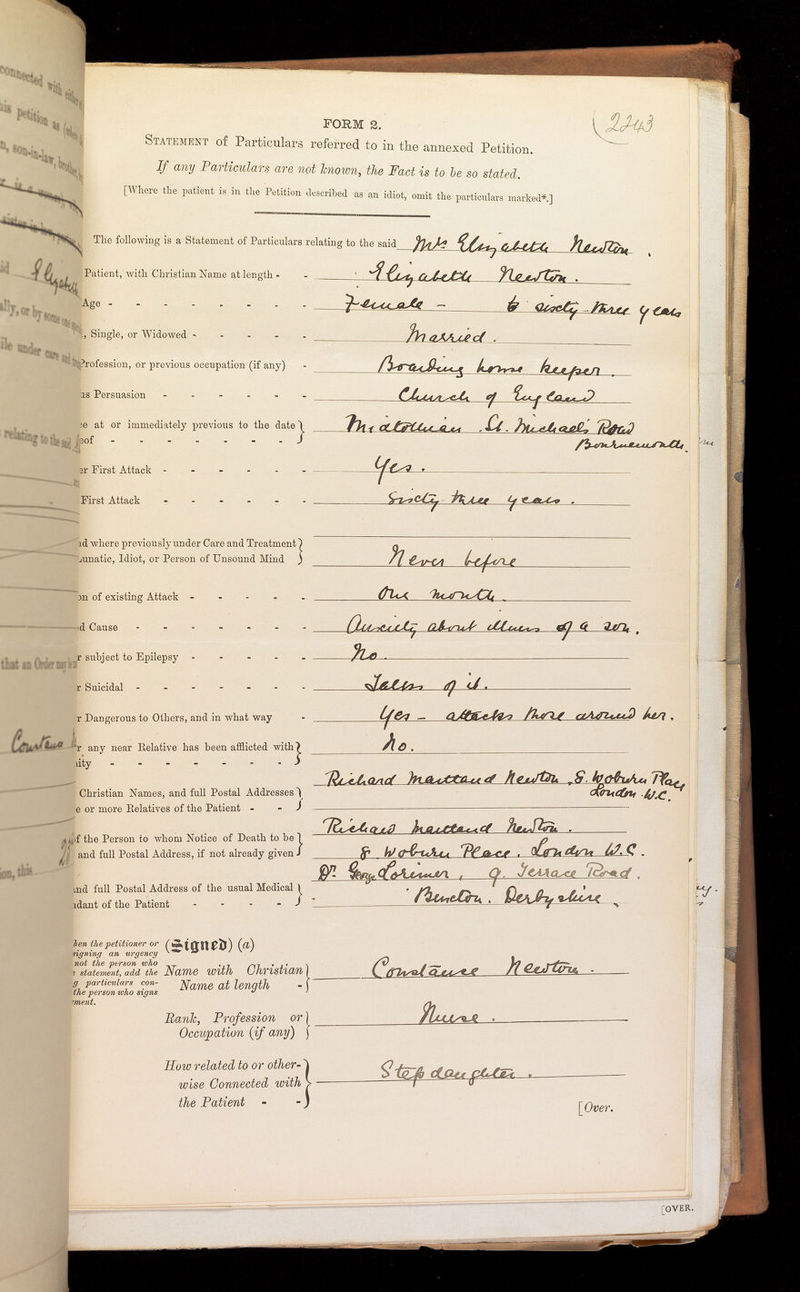 connected with either
his petition as
n, son-in-law, brother
or by some
ile under care
relating to the said
that an Order may be
Constance
ion, this
FORM 2.
2243
STATEMENT of Particulars referred to in the annexed Petition.
If any Particulars are not known, the Fact is to be so stated.
[Where the patient is in the Petition described as an idiot, omit the particulars marked*.]
The following is a Statement of Particulars relating to the said Mrs Elizabeth Newton.
Patient, with Christian Name at length - - Elizabeth Newton.
Age - - - - - - - - Female - sixty three years
, Single, or Widowed - - - - - Married.
Profession, or previous occupation (if any) - Boarding house keeper.
us Persuasion - - - - - - Church of England
ce at or immediately previous to the date } St. Michael's Road
eof - - - - - - - } Bournemouth.
er First Attack - - - - - - Yes.
First Attack - - - - - - Sixty three years.
nd where previously under Care and Treatment }
unatic, Idiot, or Person of Unsound Mind } Never before
on of existing Attack - - - - - One month.
d Cause - - - - - - - Anxiety about illness of a son.
r subject to Epilepsy - - - - - No.
r Suicidal - - - - - - - Talks of it.
r Dangerous to Others, and in what way - Yes - attacks those around her.
r any near Relative has been afflicted with } No.
nity - - - - - - - }
Christian Names, and full Postal Addresses } Richard Maitland Newton, 8. Woburn Place,
e or more Relatives of the Patient - - } London W.C.
of the Person to whom Notice of Death to be } Richard Maitland Newton.
and full Postal Address, if not already given } 8 Woburn Place, London W.C.
and full Postal Address of the usual Medical } Dr. Lorimer, 9. Terrace Road,
ndant of the Patient - - - - } Buxton. Derbyshire
hen the petitioner or
signing an urgency
not the person who
s statement, add the
g particulars con-
the person who signs
ment.
(Signed) (a)
Name with Christian }
Name at length - } Constance Newton.
Rank, Profession or }
Occupation (if any) } Nurse.
How related to or other- }
wise Connected with } Step daughter.
the Patient - - }
[Over.
[OVER.